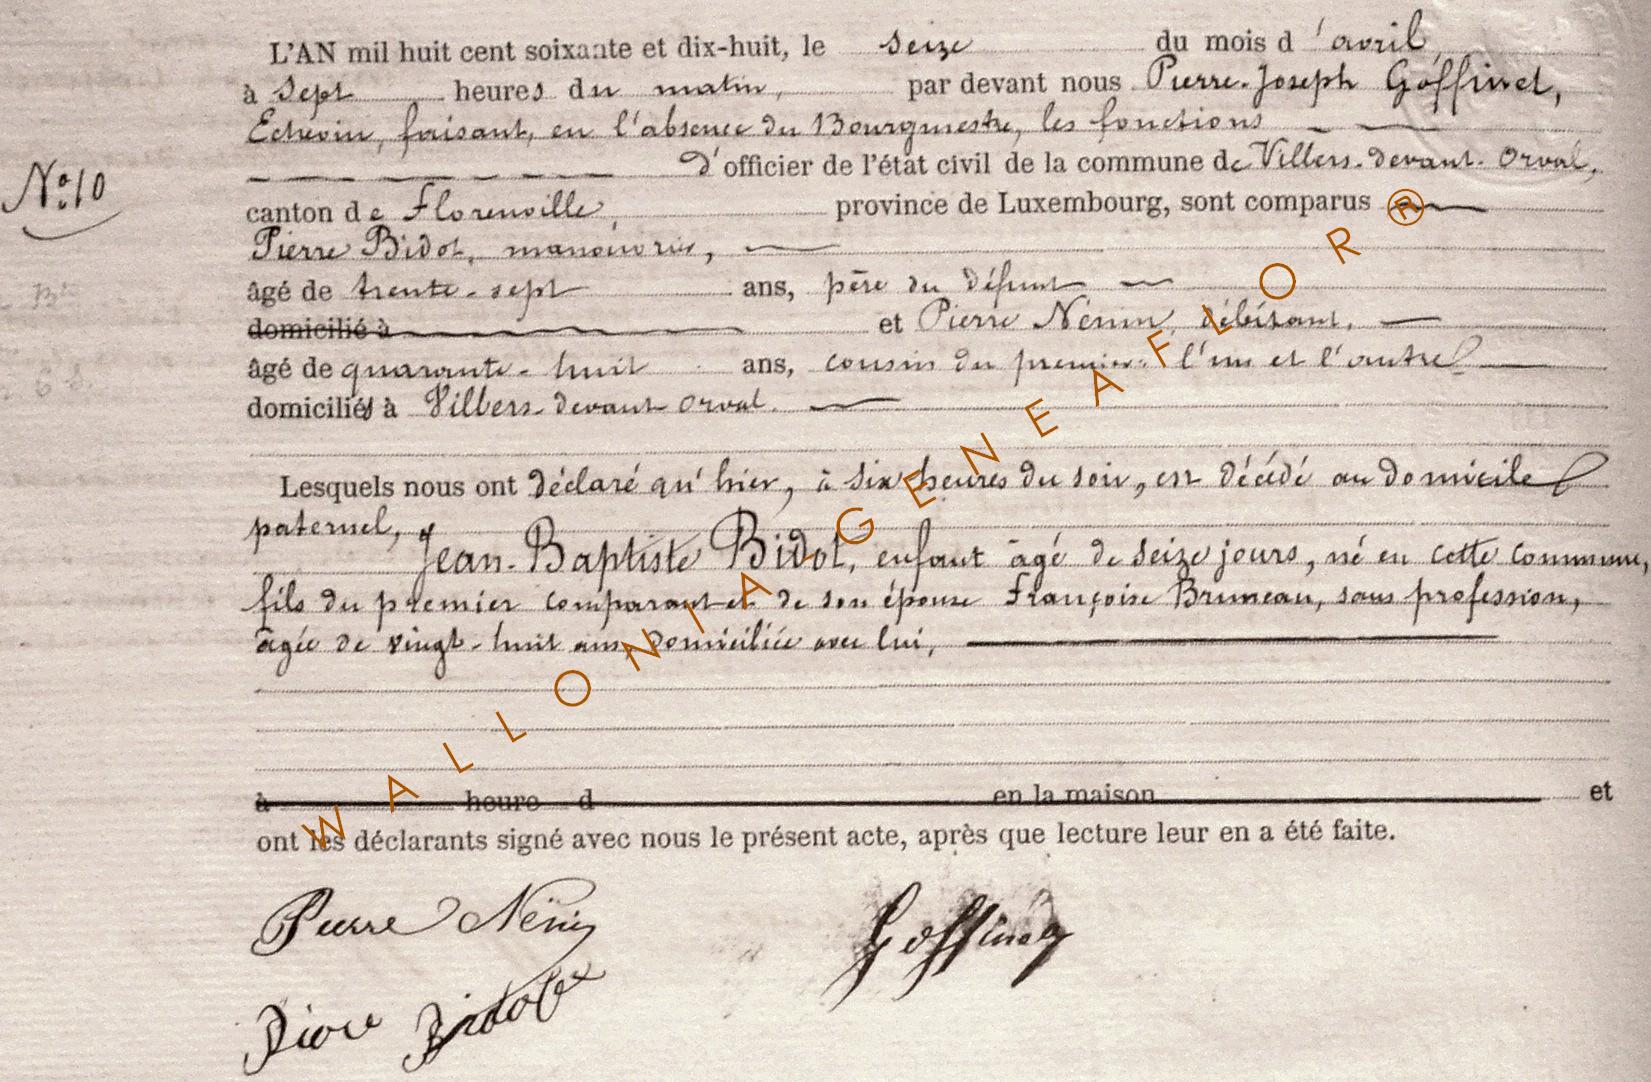 L'AN mil huit cent soixante et dix-huit, le seize du mois d'avril,
à sept heures du matin, par devant nous Pierre-Joseph Goffinet,
Echevin, faisant, en l'absence du Bourgmestre, les fonctions
d'officier de l'état civil de la commune de Villers-devant-Orval,
N° 10
canton de Florenville, province de Luxembourg, sont comparus
Pierre Bidot, manœuvrier,
âgé de trente-sept ans, père du défunt
domicilié à et Pierre Nénin, débitant,
âgé de quarante-huit ans, cousin du premier: l'un et l'autre
domiciliés à Villers-devant-Orval.
Lesquels nous ont déclaré qu'hier, à six heures du soir, est décédé au domicile
paternel,
Jean-Baptiste Bidot, enfant âgé de seize jours, né en cette commune,
fils du premier comparant et de son épouse Françoise Bruneau, sans profession,
âgée de vingt-huit ans, domiciliée avec lui,
à heure d en la maison et
ont les déclarants signé avec nous le présent acte, après que lecture leur en a été faite.
Pierre Nénin Goffinet
Piere Bidot
WALLONIA GENEAFLOR ®